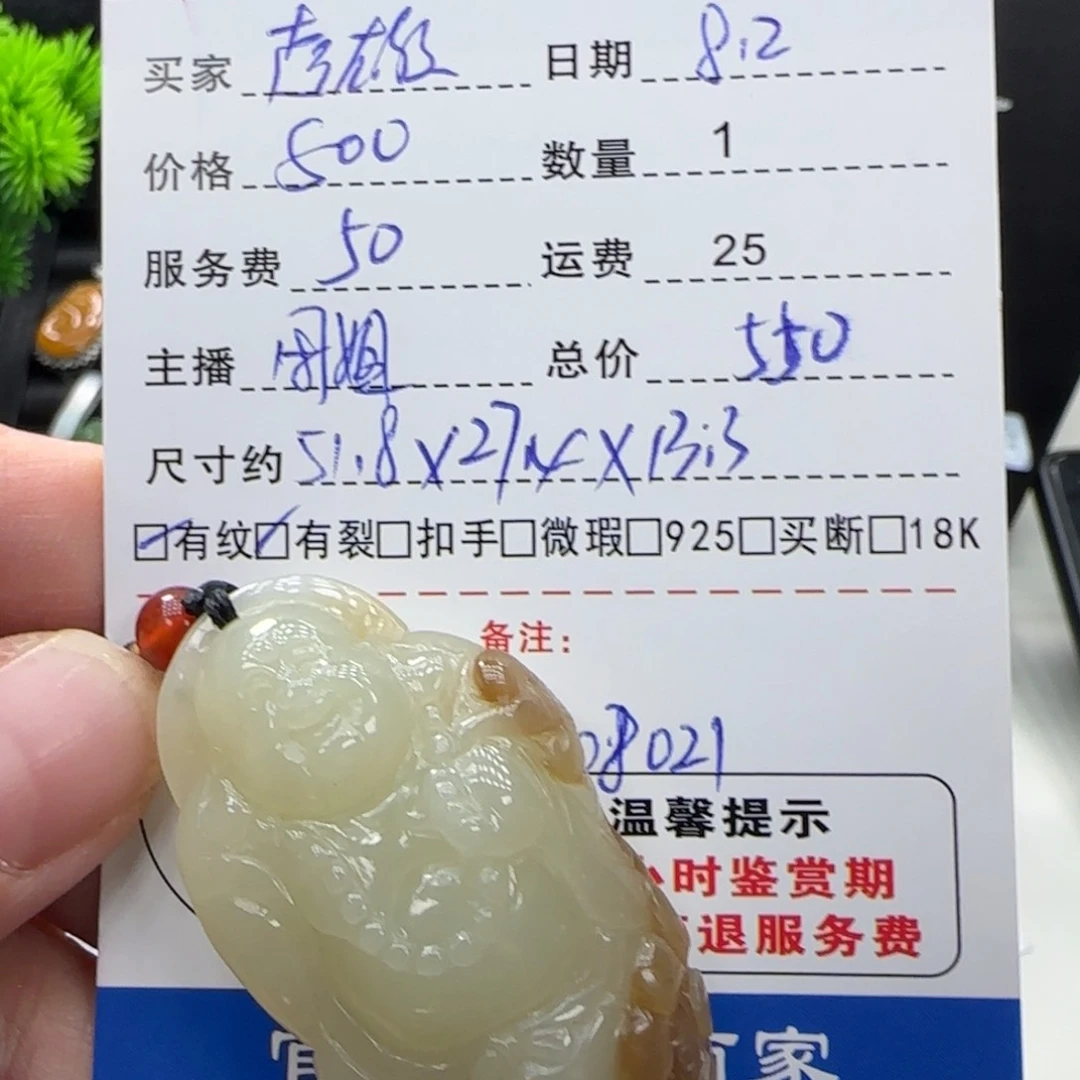 买家 彭雄 日期 8.2
价格 500 数量 1
服务费 50 运费 25
主播 丹姐 总价 550
尺寸约 51.8X27.4X13.3
有纹 有裂 扣手 微瑕 925 买断 18K
备注:
08021
温馨提示
小时鉴赏期
退服务费
百家